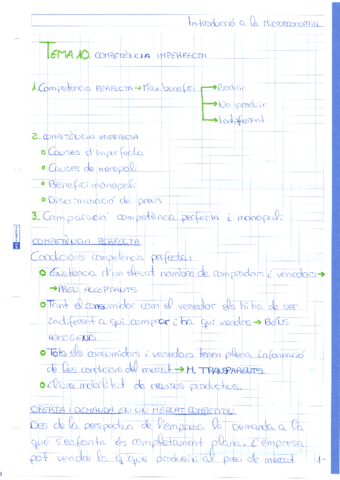 Introducció a la Microeconomia
TEMA 10. COMPETÈNCIA IMPERFECTA
1. Competència PERFECTA → Max. benefici → Produir
→ No produir
→ Indiferent
2. COMPETÈNCIA IMPERFECTA
Causes d'imperfecta
Causes de monopoli
Benefici monopoli
Discriminació de preus
3. Comparació competència perfecta i monopoli.
COMPETÈNCIA PERFECTA
Condicions competència perfecta:
Existència d'un elevat nombre de compradors i venedors →
→ PREU ACCEPTANTS
Tant el consumidor com el venedor els hi ha de ser
indiferent a qui comprar i a qui vendre → BÉNS
HOMOGENIS
Tots els consumidors i venedors tenen plena informació
de les condicions del mercat → M. TRANSPARENTS
Lliure mobilitat de recursos productius.
OFERTA I DEMANDA EN UN MERCAT COMPETITIU
Des de la perspectiva de l'empresa la demanda a la
que s'enfronta és completament plana. L'empresa
pot vendre la q que produeixi al preu de mercat
-1-